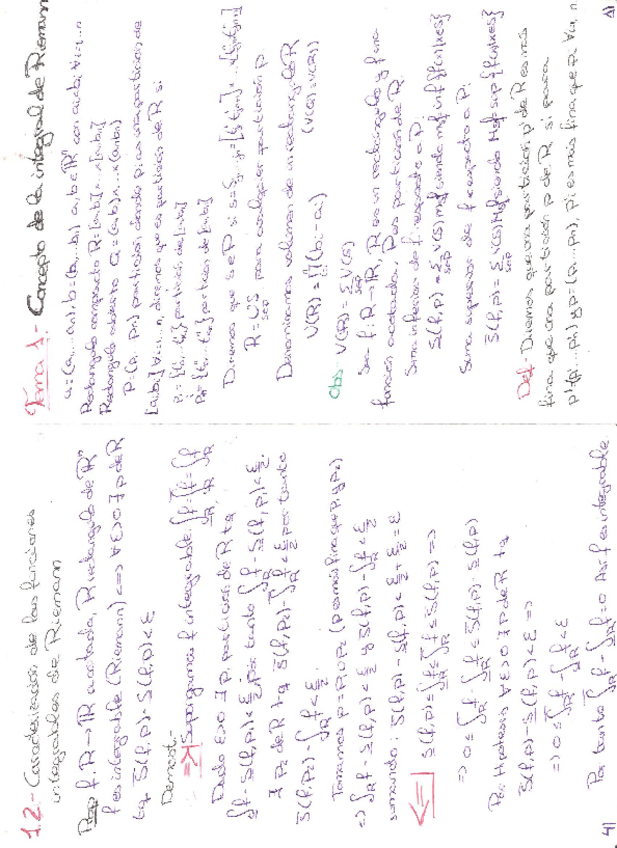 Tema 1.- Concepto de la integral de Riemann
a=(a₁...aₙ), b=(b₁...bₙ) a,b∈ℝⁿ con aᵢ<bᵢ ∀i=1...n
Rectangulo compacto R=[a₁,b₁]x...x[aₙ,bₙ]
Rectangulo abierto Q=(a₁,b₁)x...x(aₙ,bₙ)
P=(P₁...Pₙ) particion, donde pᵢ es una particion de
[aᵢ,bᵢ] ∀i=1...n, diremos que es particion de R si
particion de [a₁,b₁]
particion de [aₙ,bₙ]
Diremos que s∈P si
R = US para cualquier particion p
Denominamos volumen de un rectangulo R
V(R) = ∏(bᵢ-aᵢ) (V(Q)=V(R))
Obs- V(R)=Σ V(S)
Sea f: R→ℝ, R es un rectangulo y f una
funcion acotada, P es particion de R.
Suma inferior de f respecto a P:
S(f,p) = Σ V(S) mₛf siendo mₛf inf{f(x)|x∈S}
Suma superior de f respecto a P:
S̄(f,p) = Σ V(S) Mₛf siendo Mₛf sup{f(x)|x∈S}
Def- Diremos que una particion p' de R es mas
fina que una particion p de R, si para
p'=(p'₁...p'ₙ) y p=(p₁...pₙ), p'ᵢ es mas fina que pᵢ ∀i=1..n
1.2- Caracterizacion de las funciones
integrables de Riemann
Prop f: R→ℝ acotada, R rectangulo de ℝⁿ
f es integrable (Riemann) <=> ∀ε>0 ∃ p de R
tq. S̄(f,p) - S(f,p) < ε
Demost.-
=>| Supongamos f integrable. ∫f = ∫f = ∫f
Dado ε>0 ∃ p₁ particion de R tq
∫f - S(f,p₁) < ε/2, por tanto ∫f - S(f,p₁) < ε/2
∃ p₂ de R tq S̄(f,p₂) - ∫f < ε/2 por tanto
S̄(f,p₂) - ∫f < ε/2.
Tomamos p = p₁∪p₂ (p es mas fina que p₁ y p₂)
=> ∫f - S(f,p) < ε/2 y S̄(f,p) - ∫f < ε/2
sumando: S̄(f,p) - S(f,p) < ε/2 + ε/2 = ε
<=| S(f,p) ≤ ∫f ≤ ∫f ≤ S̄(f,p) =>
=> 0 ≤ ∫f - ∫f ≤ S̄(f,p) - S(f,p)
Por Hipotesis ∀ε>0 ∃ p de R tq
S̄(f,p) - S(f,p) < ε =>
=> 0 ≤ ∫f - ∫f < ε
Por tanto ∫f - ∫f = 0 Asi f es integrable
4)